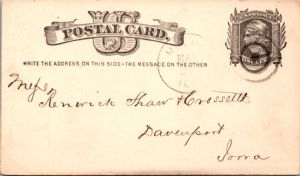 U S
POSTAL CARD.
WRITE THE ADDRESS ON THIS SIDE-THE MESSAGE ON THE OTHER
Mess
Renwick Shaw & Crossett
Davenport
Iowa